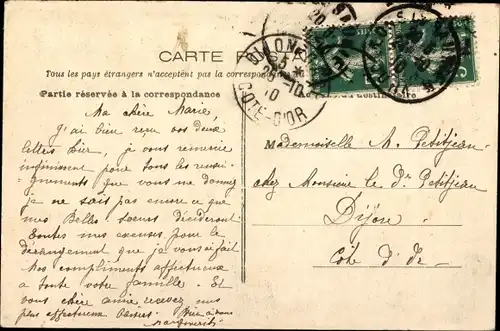 CARTE
Tous les pays étrangers n'acceptent pas la correspondance
Partie réservée à la correspondance
Ma chère Marie,
J'ai bien reçu vos deux
lettres hier, je vous remercie
infiniment pour tous les rensei-
gnements que vous me donnez
je ne sais pas encore ce que
mes Belles Soeurs décideront.
Toutes mes excuses pour le
dérangement que je vous ai fait
Mes compliments affectueux
à toute votre famille. Et
vous chère amie recevez mes
plus affectueux baisers. Bien à vous
Marguerite
DIJON
25 -10
10
COTE-D'OR
Mademoiselle M. Petitjean
chez Monsieur le Dr Petitjean
Dijon
Côte d'Or